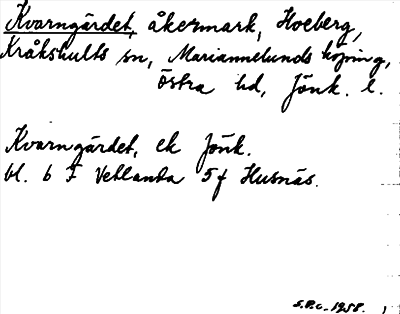 Kvarngärdet, åkermark, Hoeberg,
Kråkshults sn, Mariannelunds köping,
Östra hd, Jönk. l.
Kvarngärdet, ek Jönk.
bl. 6 F Vetlanda 5f Husnäs.
S.P.C. 1958.